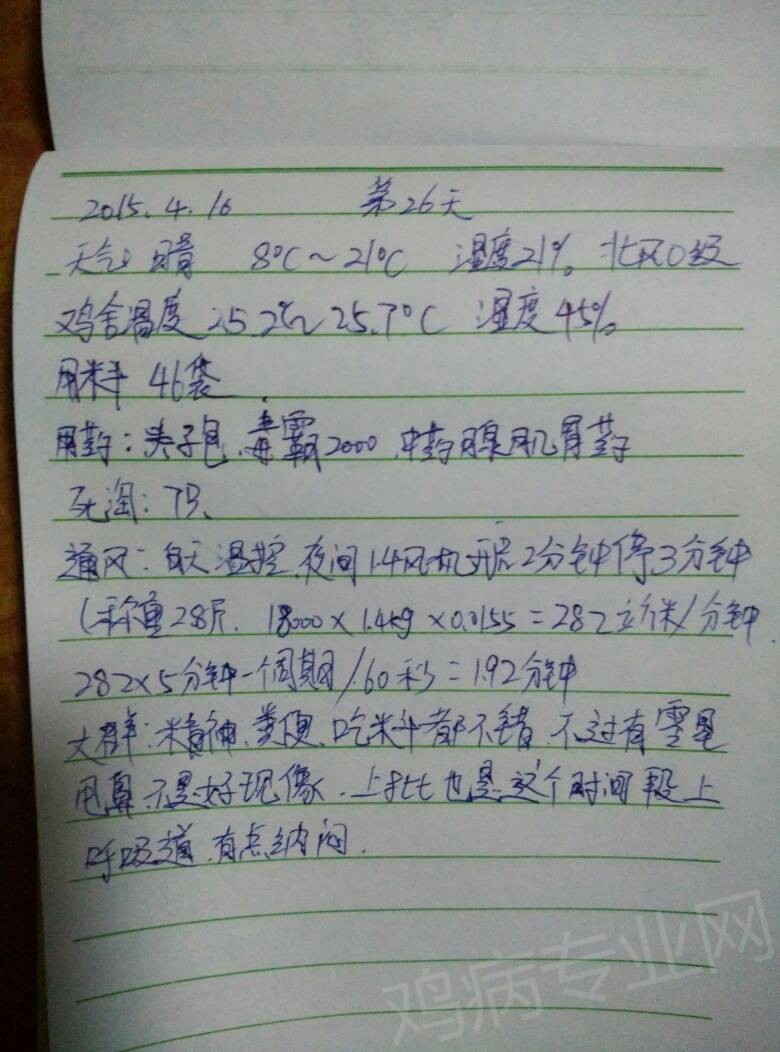 2015.4.16 第26天
天气:晴 8℃~21℃ 湿度21% 北风0级
鸡舍温度 25.2℃~25.7℃ 湿度45%
用料 46袋.
用药: 子包、毒霸2000、中药腺肌胃药
死淘:7只、
通风:白天温控、夜间1.4风机开启2分钟停3分钟
(称重2.8斤. 18000×1.4kg×0.0155=282立方米/分钟
282×5分钟一个周期/60秒=1.92分钟
大群:精神、粪便、吃料都不错、不过有零星
甩鼻不是好现像、上批也是这个时间段上
呼吸道、有点纳闷.
鸡病专业网